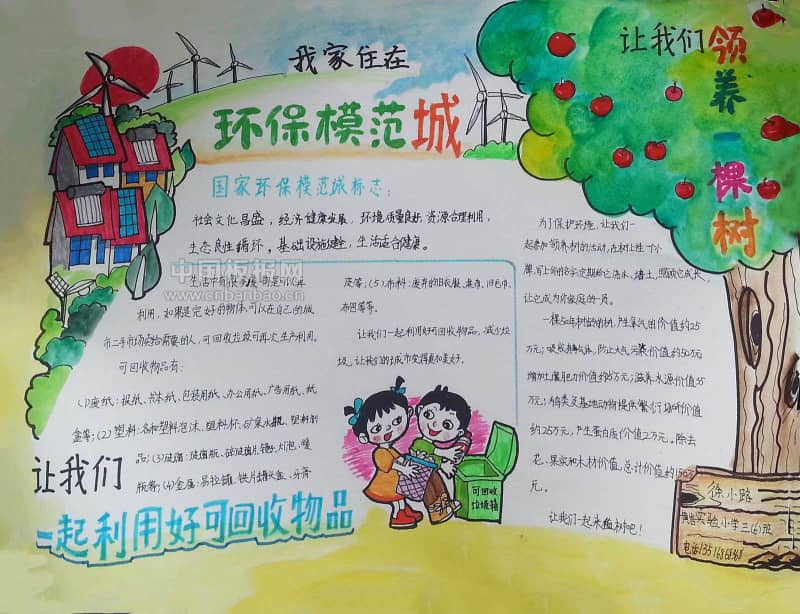 我家住在
环保模范城
国家环保模范城标志：
社会文化昌盛，经济健康发展，环境质量良好，资源合理利用，
生态良性循环，基础设施健全，生活适合健康。
中国板报网
www.cnbanbao.cn
利用，如果是完好的物体，可以在自己的城
可回收物品有：
(1)废纸：报纸、书本纸、包装用纸、办公用纸、广告用纸、纸
盒等；(2)塑料：各种塑料泡沫、塑料杯、矿泉水瓶、塑料制
品；(3)玻璃：玻璃瓶、碎玻璃片、镜子、灯泡、暖
瓶等；(4)金属：易拉罐、铁片、
皮等；(5)布料：废弃的旧衣服、桌布、旧毛巾、
布包等等。
让我们一起利用好可回收物品，减少垃
圾，让我们的城市变得更加美好。
让我们
一起利用好可回收物品
可回收
垃圾箱
让我们领养一棵树
为了保护环境，让我们一
起参加领养树的活动，在树上挂一个小
牌，写上你的名字，定期给它浇水、培土，照顾它成长，
让它成为你家庭的一员。
一棵50年树龄的树，产生氧气的价值约25
万元；吸收有毒气体，防止大气污染价值约50万元
增加土壤肥力价值约
万元；滋养水源价值35
万元；为鸟类及其他动物提供繁衍场所价值
约25万元，产生蛋白质价值2万元。除去
花、果实和木材价值，总计价值约
元。
让我们一起来植树吧！
徐小路
实验小学三(6)班